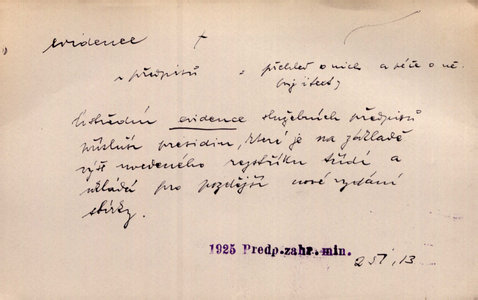 evidence †
~ předpisů = přehled o nich a péče o ně
Ústřední evidence služebních předpisů
přísluší presidiu, které je na základě
výš uvedeného rejstříku třídí a
ukládá pro pozdější nové vydání
sbírky.
1925 Predp.zahr.min.
13